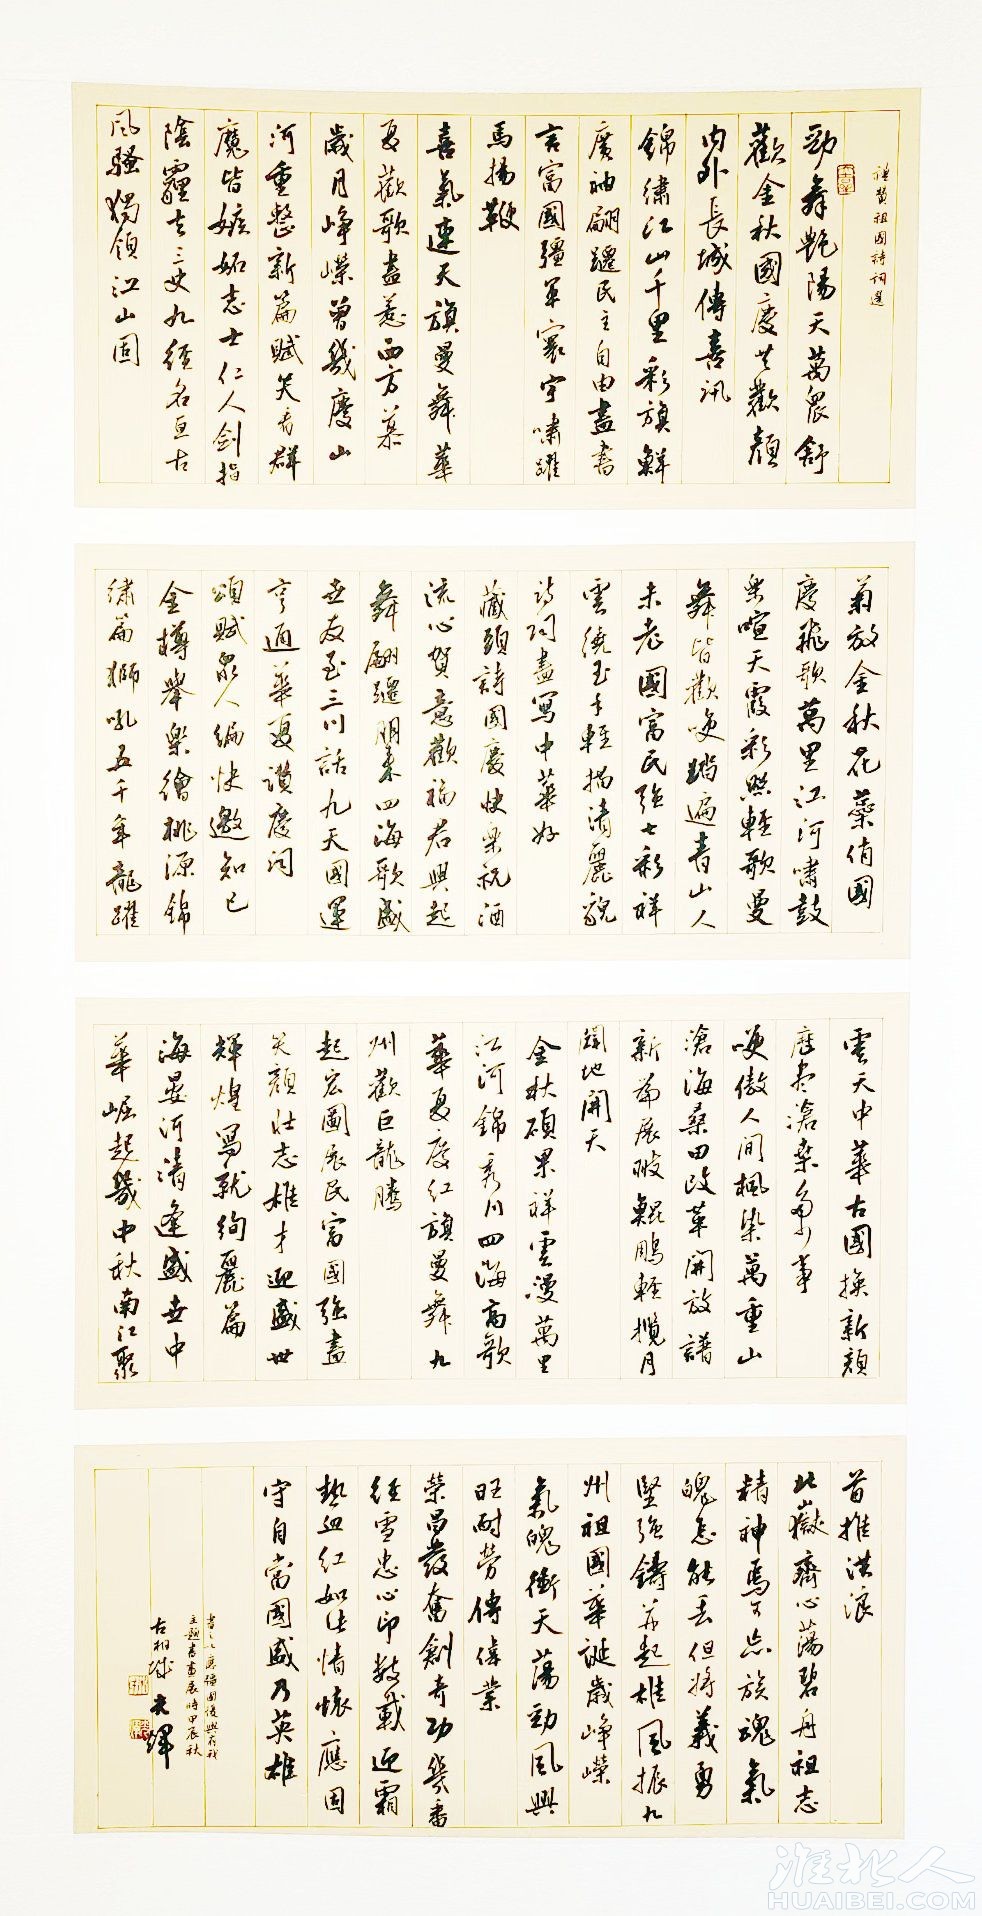 礼赞祖國詩詞選
勁舞艷陽天萬衆舒
歡金秋國慶共歡顏
内外長城傳喜訊
錦繡江山千里彩旗鮮
廣袖翩躚民主自由盡書
言富國彊軍寰宇嘯躍
馬揚鞭
喜氣連天旗曼舞華
夏歡歌盡惹西方慕
歲月崢嶸曾幾度山
河重整新篇賦笑看群
魔皆嫉妬志士仁人劍指
陰霾去三史九經名亘古
風騷獨領江山固
菊放金秋花蘂俏國
慶飛歌萬里江河嘯鼓
樂喧天霞彩照輕歌曼
舞皆歡唤踏遍青山人
未老國富民強七彩祥
雲繞玉手輕描清麗貌
詩詞盡寫中華好
藏頭詩國慶快樂祝酒
流心賀意歡福若興起
舞翩躚朋來四海歌盛
世友至三川話九天國運
亨通華夏讚慶詞
頌賦衆人編快邀知己
金樽舉樂繪桃源錦
繡篇獅吼五千年龍躍
雲天中華古國換新顏
歷盡滄桑多少事
唤傲人間楓染萬重山
滄海桑田改革開放譜
新篇展翅鯤鵬輕攬月
闢地開天
金秋碩果祥雲漫萬里
江河錦秀川四海高歌
華夏慶紅旗曼舞九
州歡巨龍騰
起宏圖展民富國強盡
笑顏壯志雄才迎盛世
輝煌寫就絢麗篇
海晏河清逢盛世中
華崛起幾中秋南江聚
首推洪浪
北嶽齊心蕩碧舟祖志
精神焉可忘族魂氣
魄怎能丟但將義勇
堅強鑄并起雄風振九
州祖國華誕歲崢嶸
氣魄衝天蕩勁風興
旺耐勞傳偉業
榮昌發奮創奇功幾番
經雪忠心印數載迎霜
熱血紅如此情懷應固
守自當國盛乃英雄
書之以應強國復興有我
主題書畫展時甲辰秋
古相城 光輝
淮北人
HUAIBEI.COM